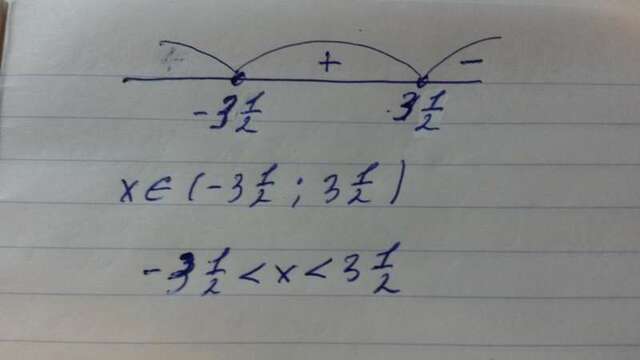 + -
-3 1/2 3 1/2
x ∈ (-3 1/2 ; 3 1/2)
-3 1/2 < x < 3 1/2